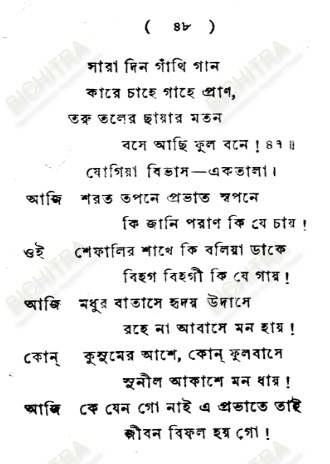 ( ৪৮ )
সারা দিন গাঁথি গান
কারে চাহে গাহে প্রাণ,
তরু তলের ছায়ার মতন
বসে আছি ফুল বনে ! ৪৭ ॥
যোগিয়া বিভাস—একতালা।
আজি শরত তপনে প্রভাত স্বপনে
কি জানি পরাণ কি যে চায় !
ওই শেফালির শাখে কি বলিয়া ডাকে
বিহগ বিহগী কি যে গায় !
আজি মধুর বাতাসে হৃদয় উদাসে
রহে না আবাসে মন হায় !
কোন্ কুসুমের আশে, কোন্ ফুলবাসে
সুনীল আকাশে মন ধায় !
আজি কে যেন গো নাই এ প্রভাতে তাই
জীবন বিফল হয় গো !
BICHITRA